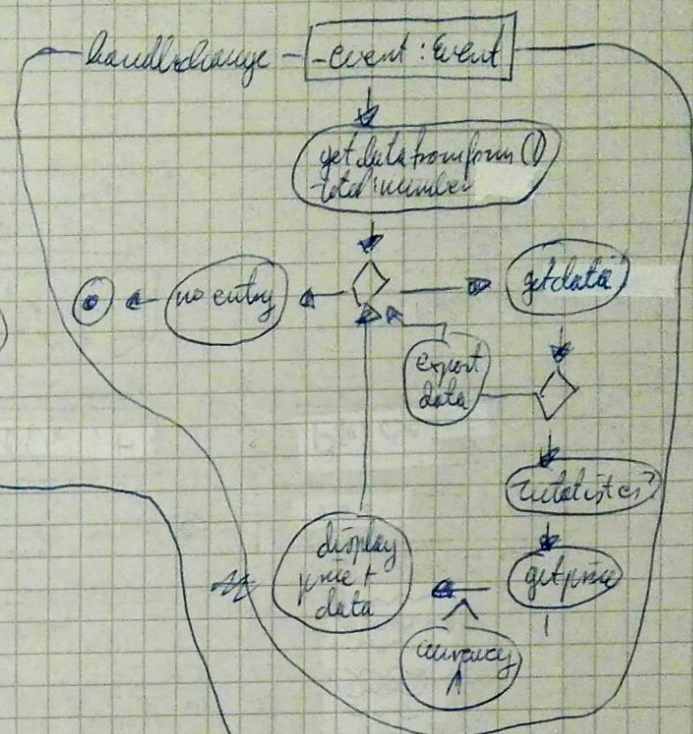 handlechange
-event : Event
getdatafromform()
-total:number
no entry
getdata
export
data
getprice
display
price +
data
currency